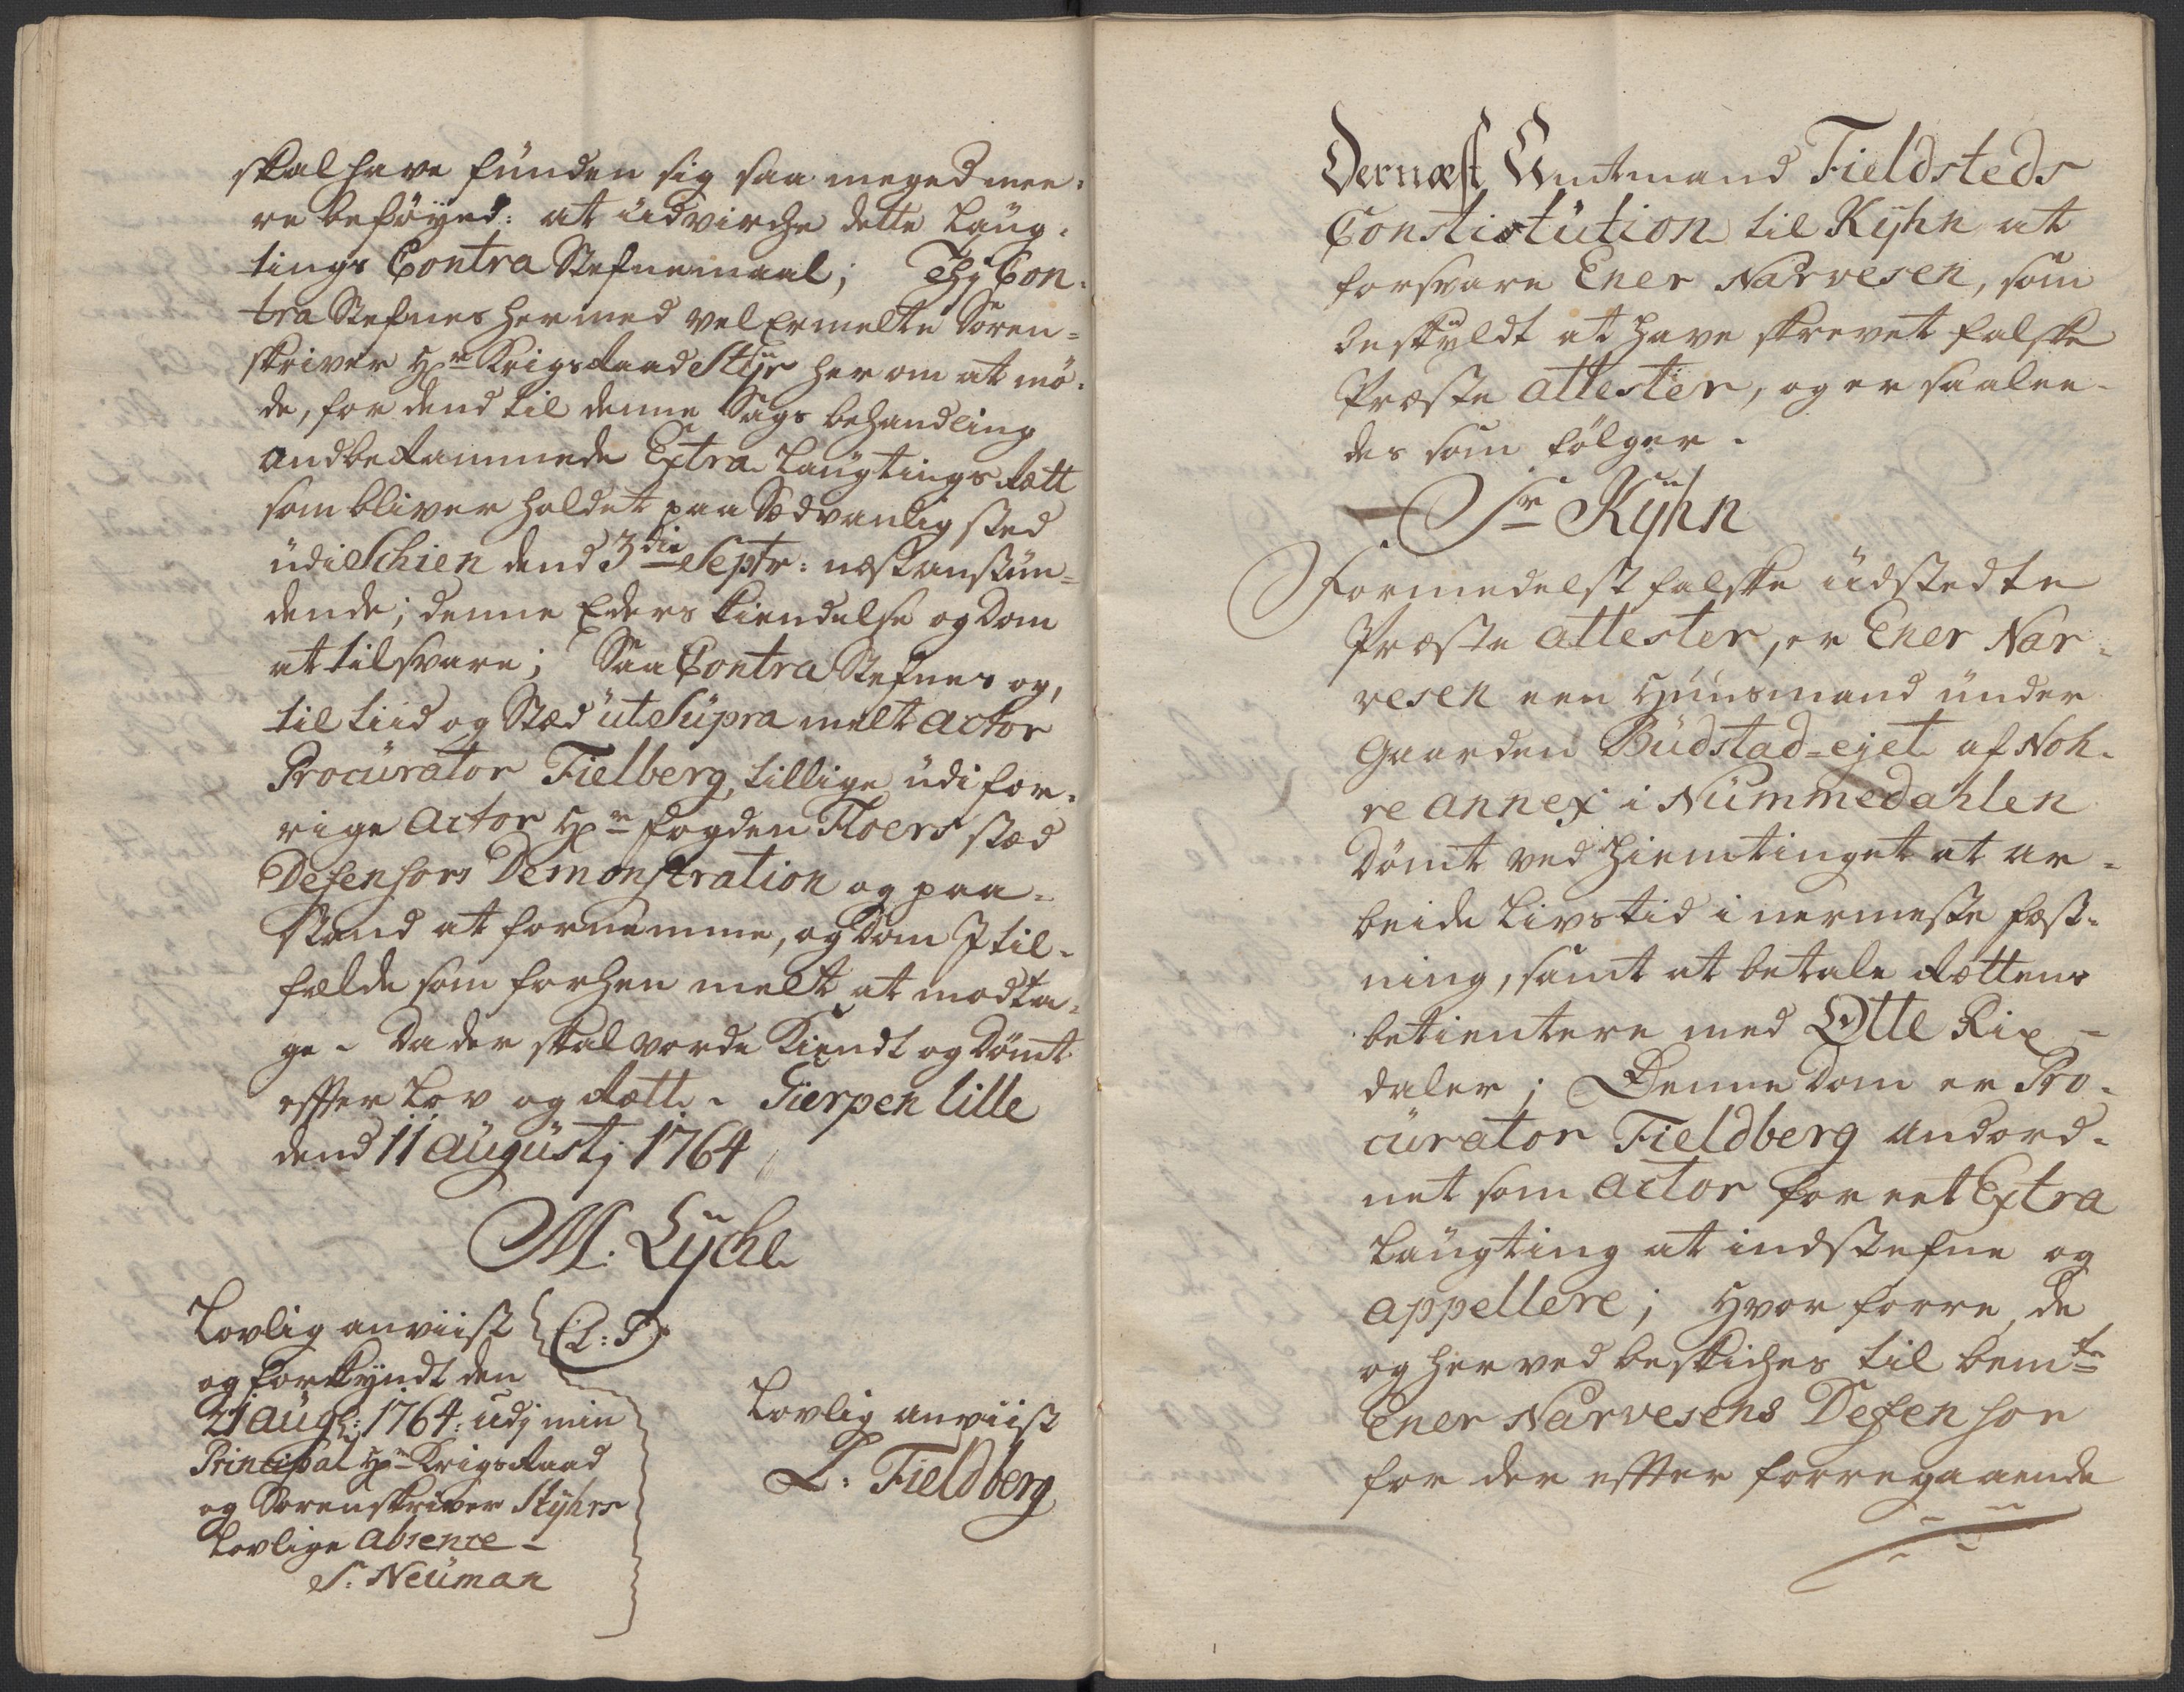 skal have fünden sig saa meged mee-
re beföyed: at üdvirche dette Laug-
tings Contra Stefnemaal; Thj Con-
tra Stefnes hermed vel Ermelte Soren-
skriver Hr: Krigs Raad Stÿr her om at mö-
de, for dend til denne Sags behandling
andberammede Extra Laugtings Rætt
som bliver holdet paa Sedvanlig sted
üdi Schien dend 3die Septr: næstanstün-
dende; denne Eders Kiendelse og Dom
at tilsvare; Saa Contra Stefnes og,
til tiid og Stæd üt Süpra melt Actor
Procürator Fielberg, tillige üdi for-
rige Actor Hr: fogden Floers stæd
Defensors Demonstration og paa-
stand at fornemme, og Dom J til-
fælde som forhen melt at modta-
ge - Da der skal vorde Kiendt og Dömt
effter Lov og Rætt. Gierpen lille
dend 11 Augüstj 1764
M: Lÿche
Lovlig anviist (L: S)
og forkyndt den
21 Augs: 1764: udj min
Principal Hr: Krigs Raad
og Sorenskriver Stÿhrs
Lovlige Absence -
S: Neüman
Lovlig anviist
L: Fieldberg
Dernæst Amtmand Fieldsteds
Constistütion til Kÿhn at
forsvare Ener Narvesen, som
Beskyldt at have skrevet falske
Præste attester, og er saalee-
des som fölger.
Sr Kÿhn
Formedelst falske üdstedte
Præste attester, er Ener Nar-
vesen een Huusmand ünder
Gaarden Büdstad-ejet af Noh-
re annex i Nümmedahlen
Dömt ved Hiemtinget at ar-
beide Livstid i nermeste fæst-
ning, samt at betale Rættens
betientere med Otte Rix-
daler; Denne Dom er Pro-
cürator Fieldberg Andord-
net som Actor for eet Extra
Laügting at indstefne og
appellere; Hvor forre, de
og her ved beskiches til bemte
Ener Narvesens Defensor
for der effter forregaaende